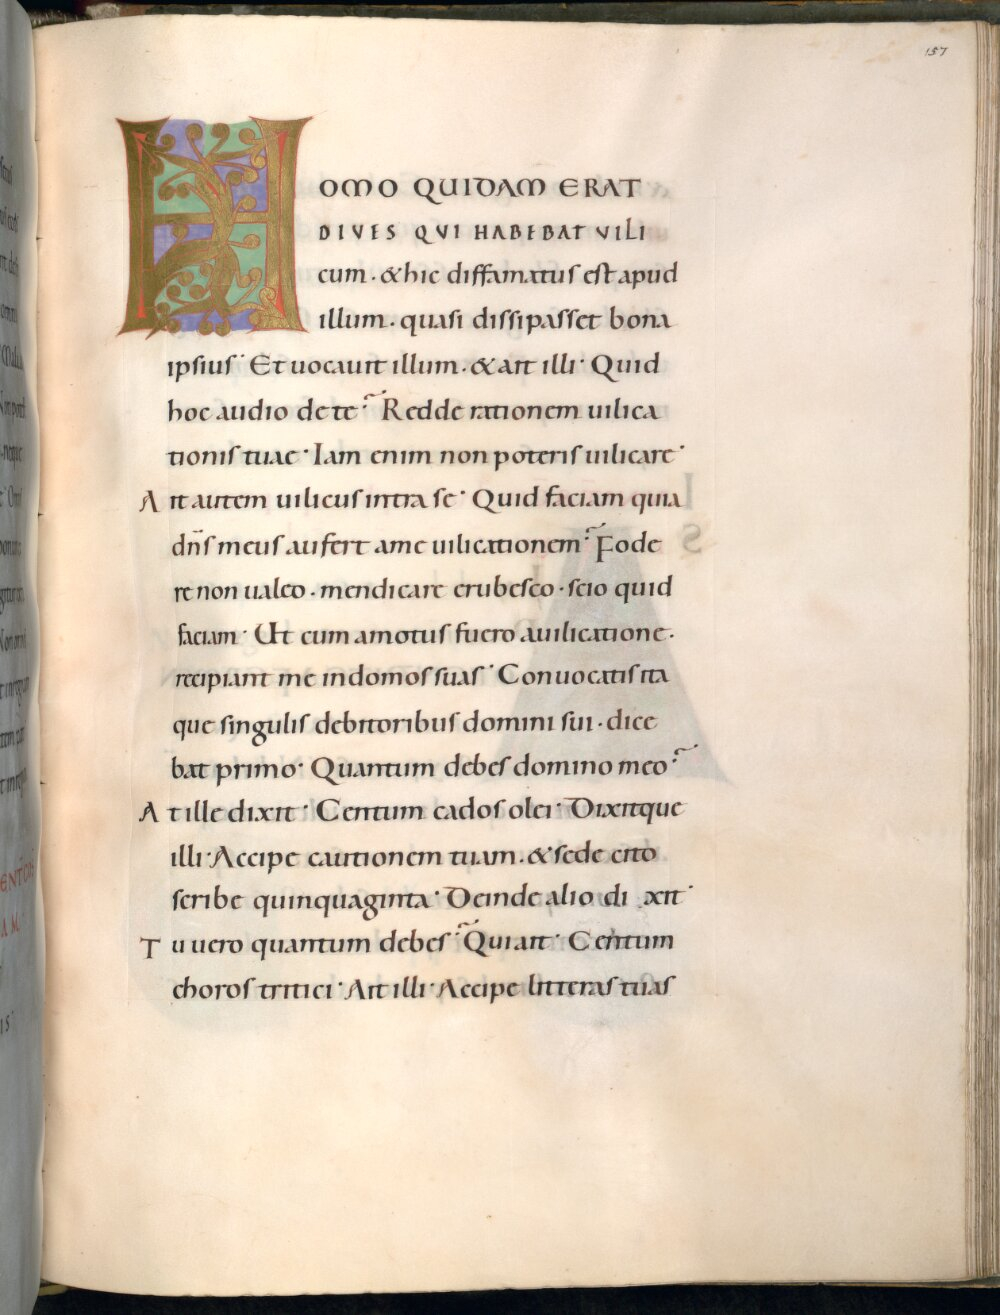 157
HOMO QUIDAM ERAT
DIVES QVI HABEBAT VILI
cum · & hic diffamatus est apud
illum · quasi dissipasset bona
ipsius · Et uocauit illum · & ait illi · Quid
hoc audio de te? Redde rationem uilica
tionis tuae · Iam enim non poteris uilicare ·
Ait autem uilicus intra se · Quid faciam quia
dn̄s meus aufert a me uilicationem? Fode
re non ualeo · mendicare erubesco · scio quid
faciam · Ut cum amotus fuero a uilicatione ·
recipiant me in domos suas · Conuocatis ita
que singulis debitoribus domini sui · dice
bat primo · Quantum debes domino meo?
At ille dixit · Centum cados olei · Dixitque
illi · Accipe cautionem tuam · & sede cito
scribe quinquaginta · Deinde alio di xit ·
Tu uero quantum debes? Qui ait · Centum
choros tritici · Ait illi · Accipe litteras tuas